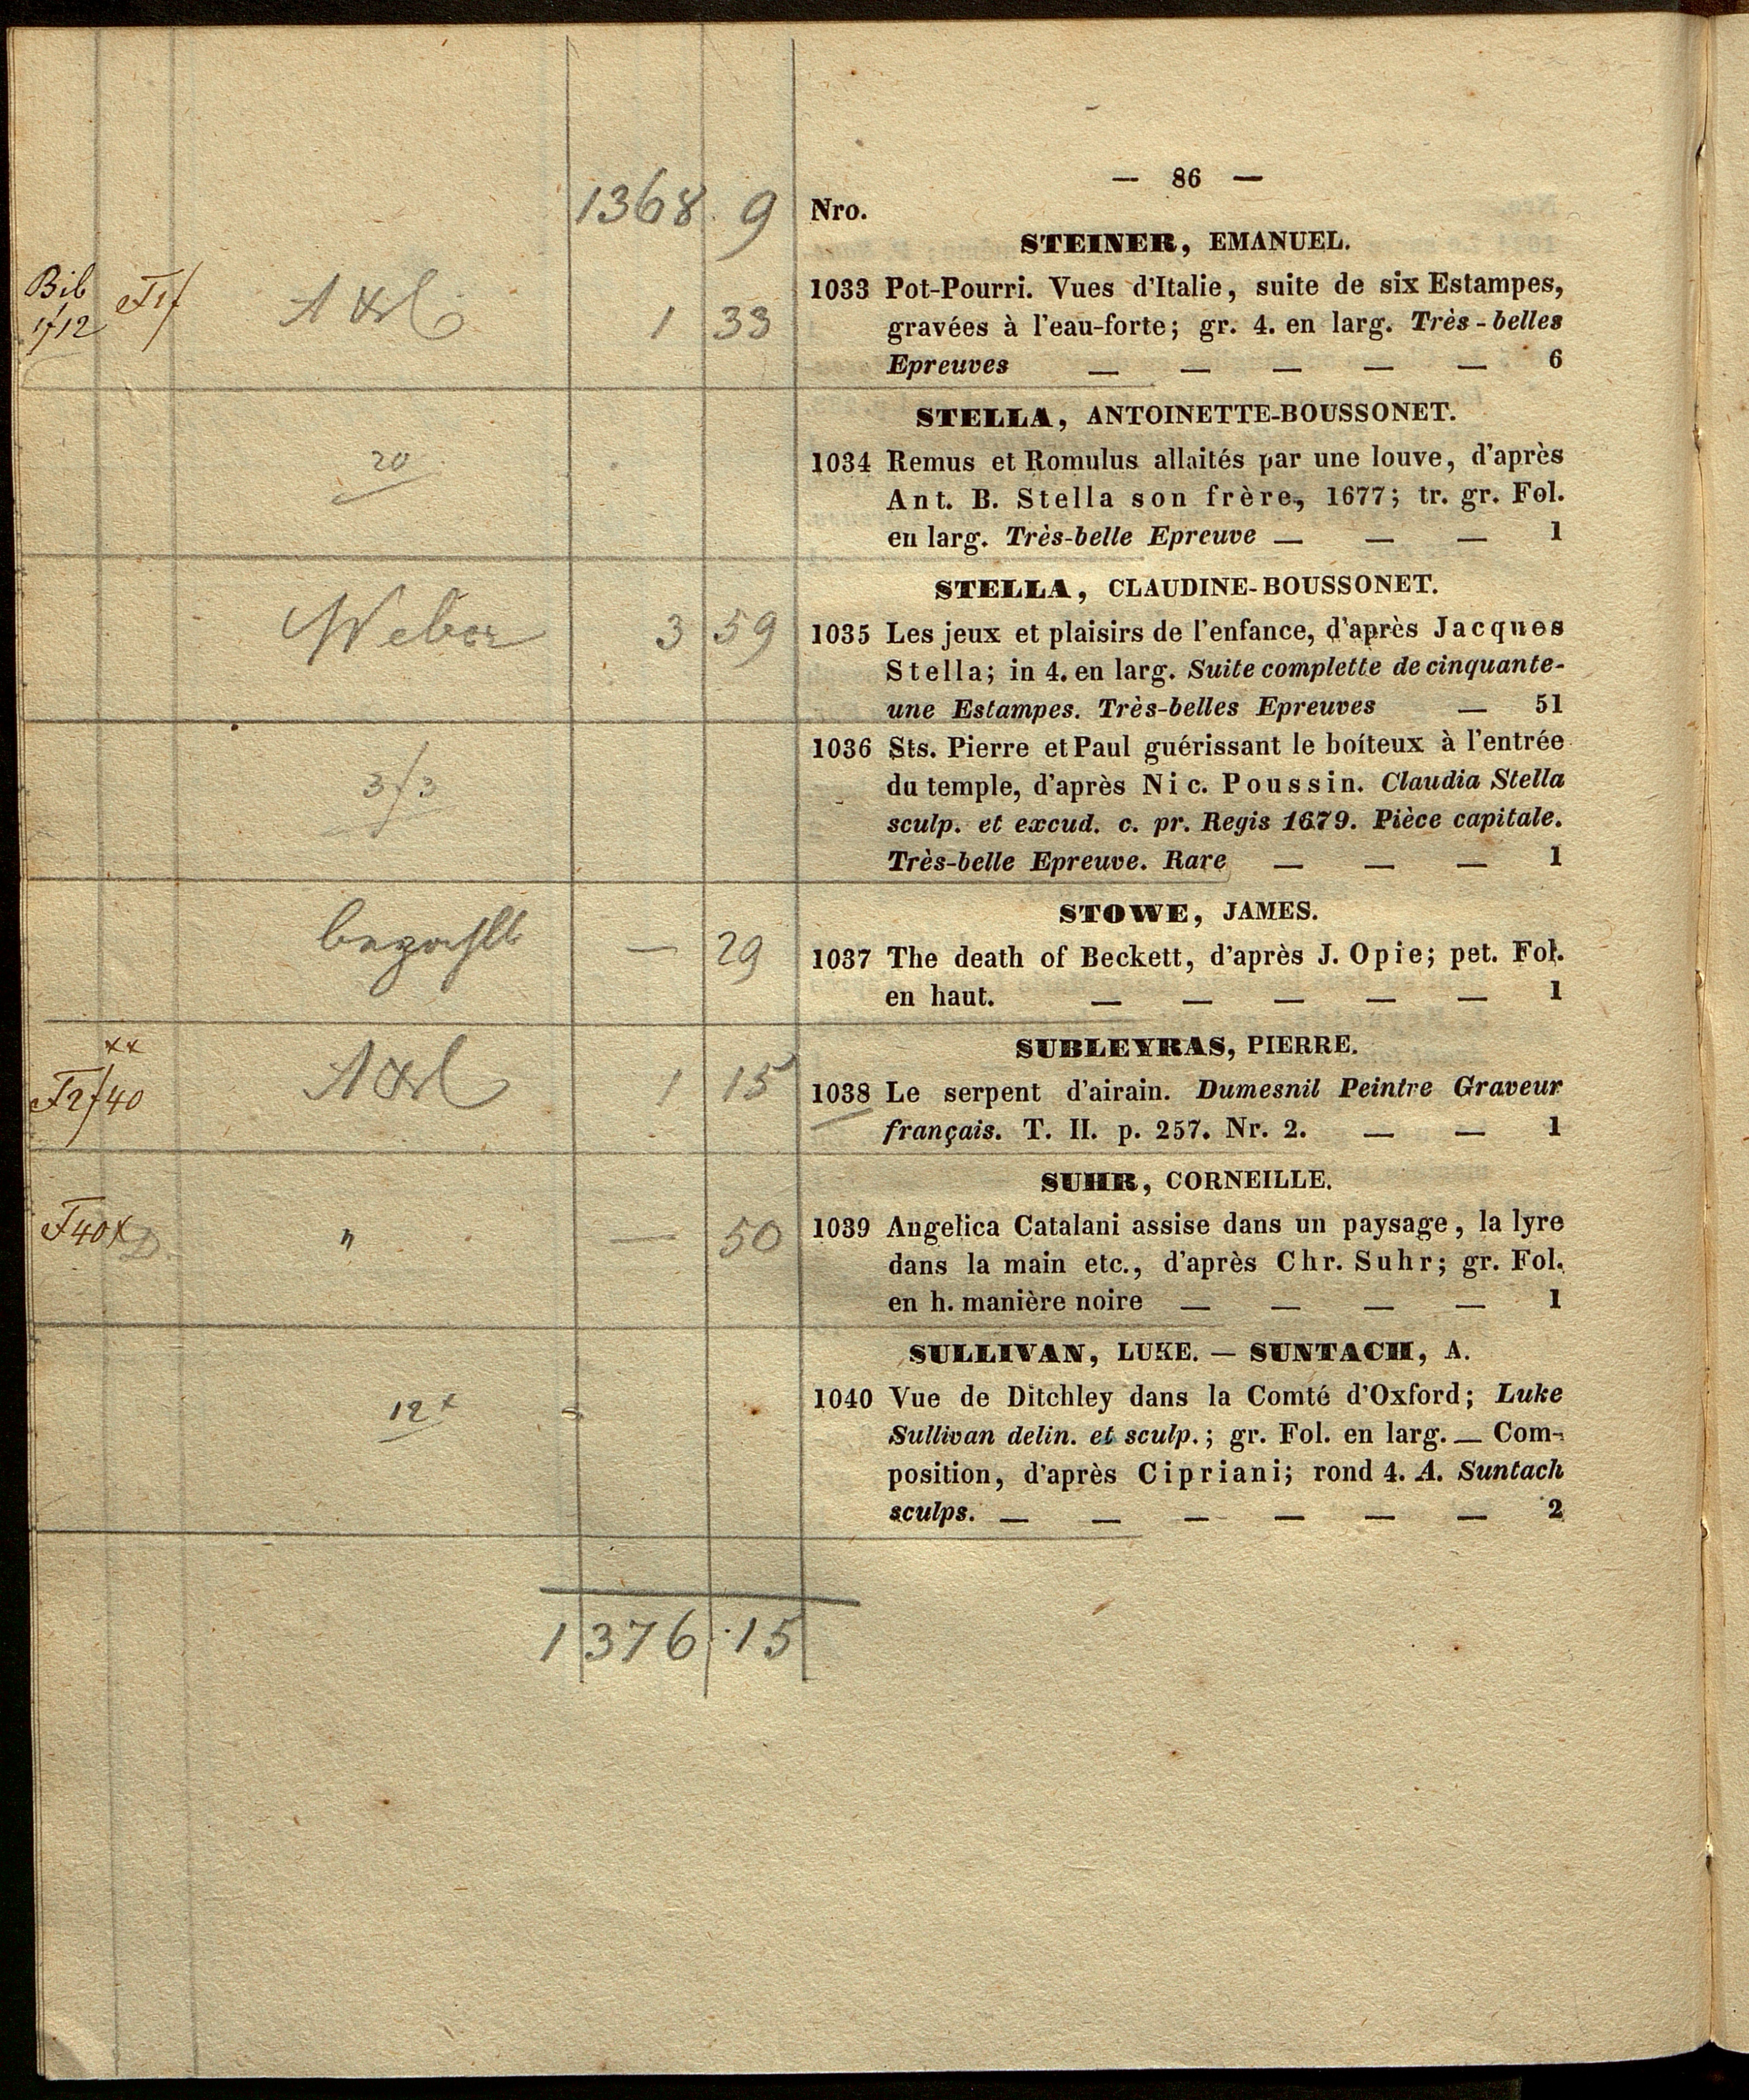 — 86 —
1368 9 Nro.
STEINER, EMANUEL.
Bib
1f12
1 33
1033 Pot-Pourri. Vues d'Italie, suite de six Estampes,
gravées à l'eau-forte; gr. 4. en larg. Très-belles
Epreuves — — — — — 6
STELLA, ANTOINETTE-BOUSSONET.
20
1034 Remus et Romulus allaités par une louve, d'après
Ant. B. Stella son frère, 1677; tr. gr. Fol.
en larg. Très-belle Epreuve — — — 1
STELLA, CLAUDINE-BOUSSONET.
Weber 3 59
1035 Les jeux et plaisirs de l'enfance, d'après Jacques
Stella; in 4. en larg. Suite complette de cinquante-
une Estampes. Très-belles Epreuves — 51
3f3
1036 Sts. Pierre et Paul guérissant le boíteux à l'entrée
du temple, d'après Nic. Poussin. Claudia Stella
sculp. et excud. c. pr. Regis 1679. Pièce capitale.
Très-belle Epreuve. Rare — — — 1
STOWE, JAMES.
bezahlt — 29
1037 The death of Beckett, d'après J. Opie; pet. Fol.
en haut. — — — — — 1
SUBLEYRAS, PIERRE.
xx
F2f40
1 15
1038 Le serpent d'airain. Dumesnil Peintre Graveur
français. T. II. p. 257. Nr. 2. — — 1
SUHR, CORNEILLE.
F40x
" — 50
1039 Angelica Catalani assise dans un paysage, la lyre
dans la main etc., d'après Chr. Suhr; gr. Fol.
en h. manière noire — — — — 1
SULLIVAN, LUKE. — SUNTACH, A.
12x
1040 Vue de Ditchley dans la Comté d'Oxford; Luke
Sullivan delin. et sculp.; gr. Fol. en larg. — Com-
position, d'après Cipriani; rond 4. A. Suntach
sculps. — — — — — — 2
1376 15